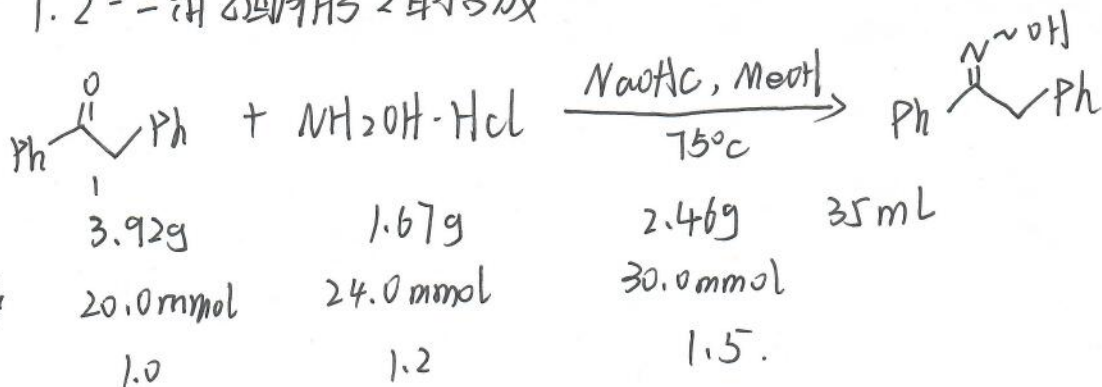 1. 2
O
N~OH
Ph Ph + NH2OH·Hcl NaOAC, MeOH Ph Ph
75°C
1
3.92g 1.67g 2.46g 35mL
20.0mmol 24.0mmol 30.0mmol
1.0 1.2 1.5.